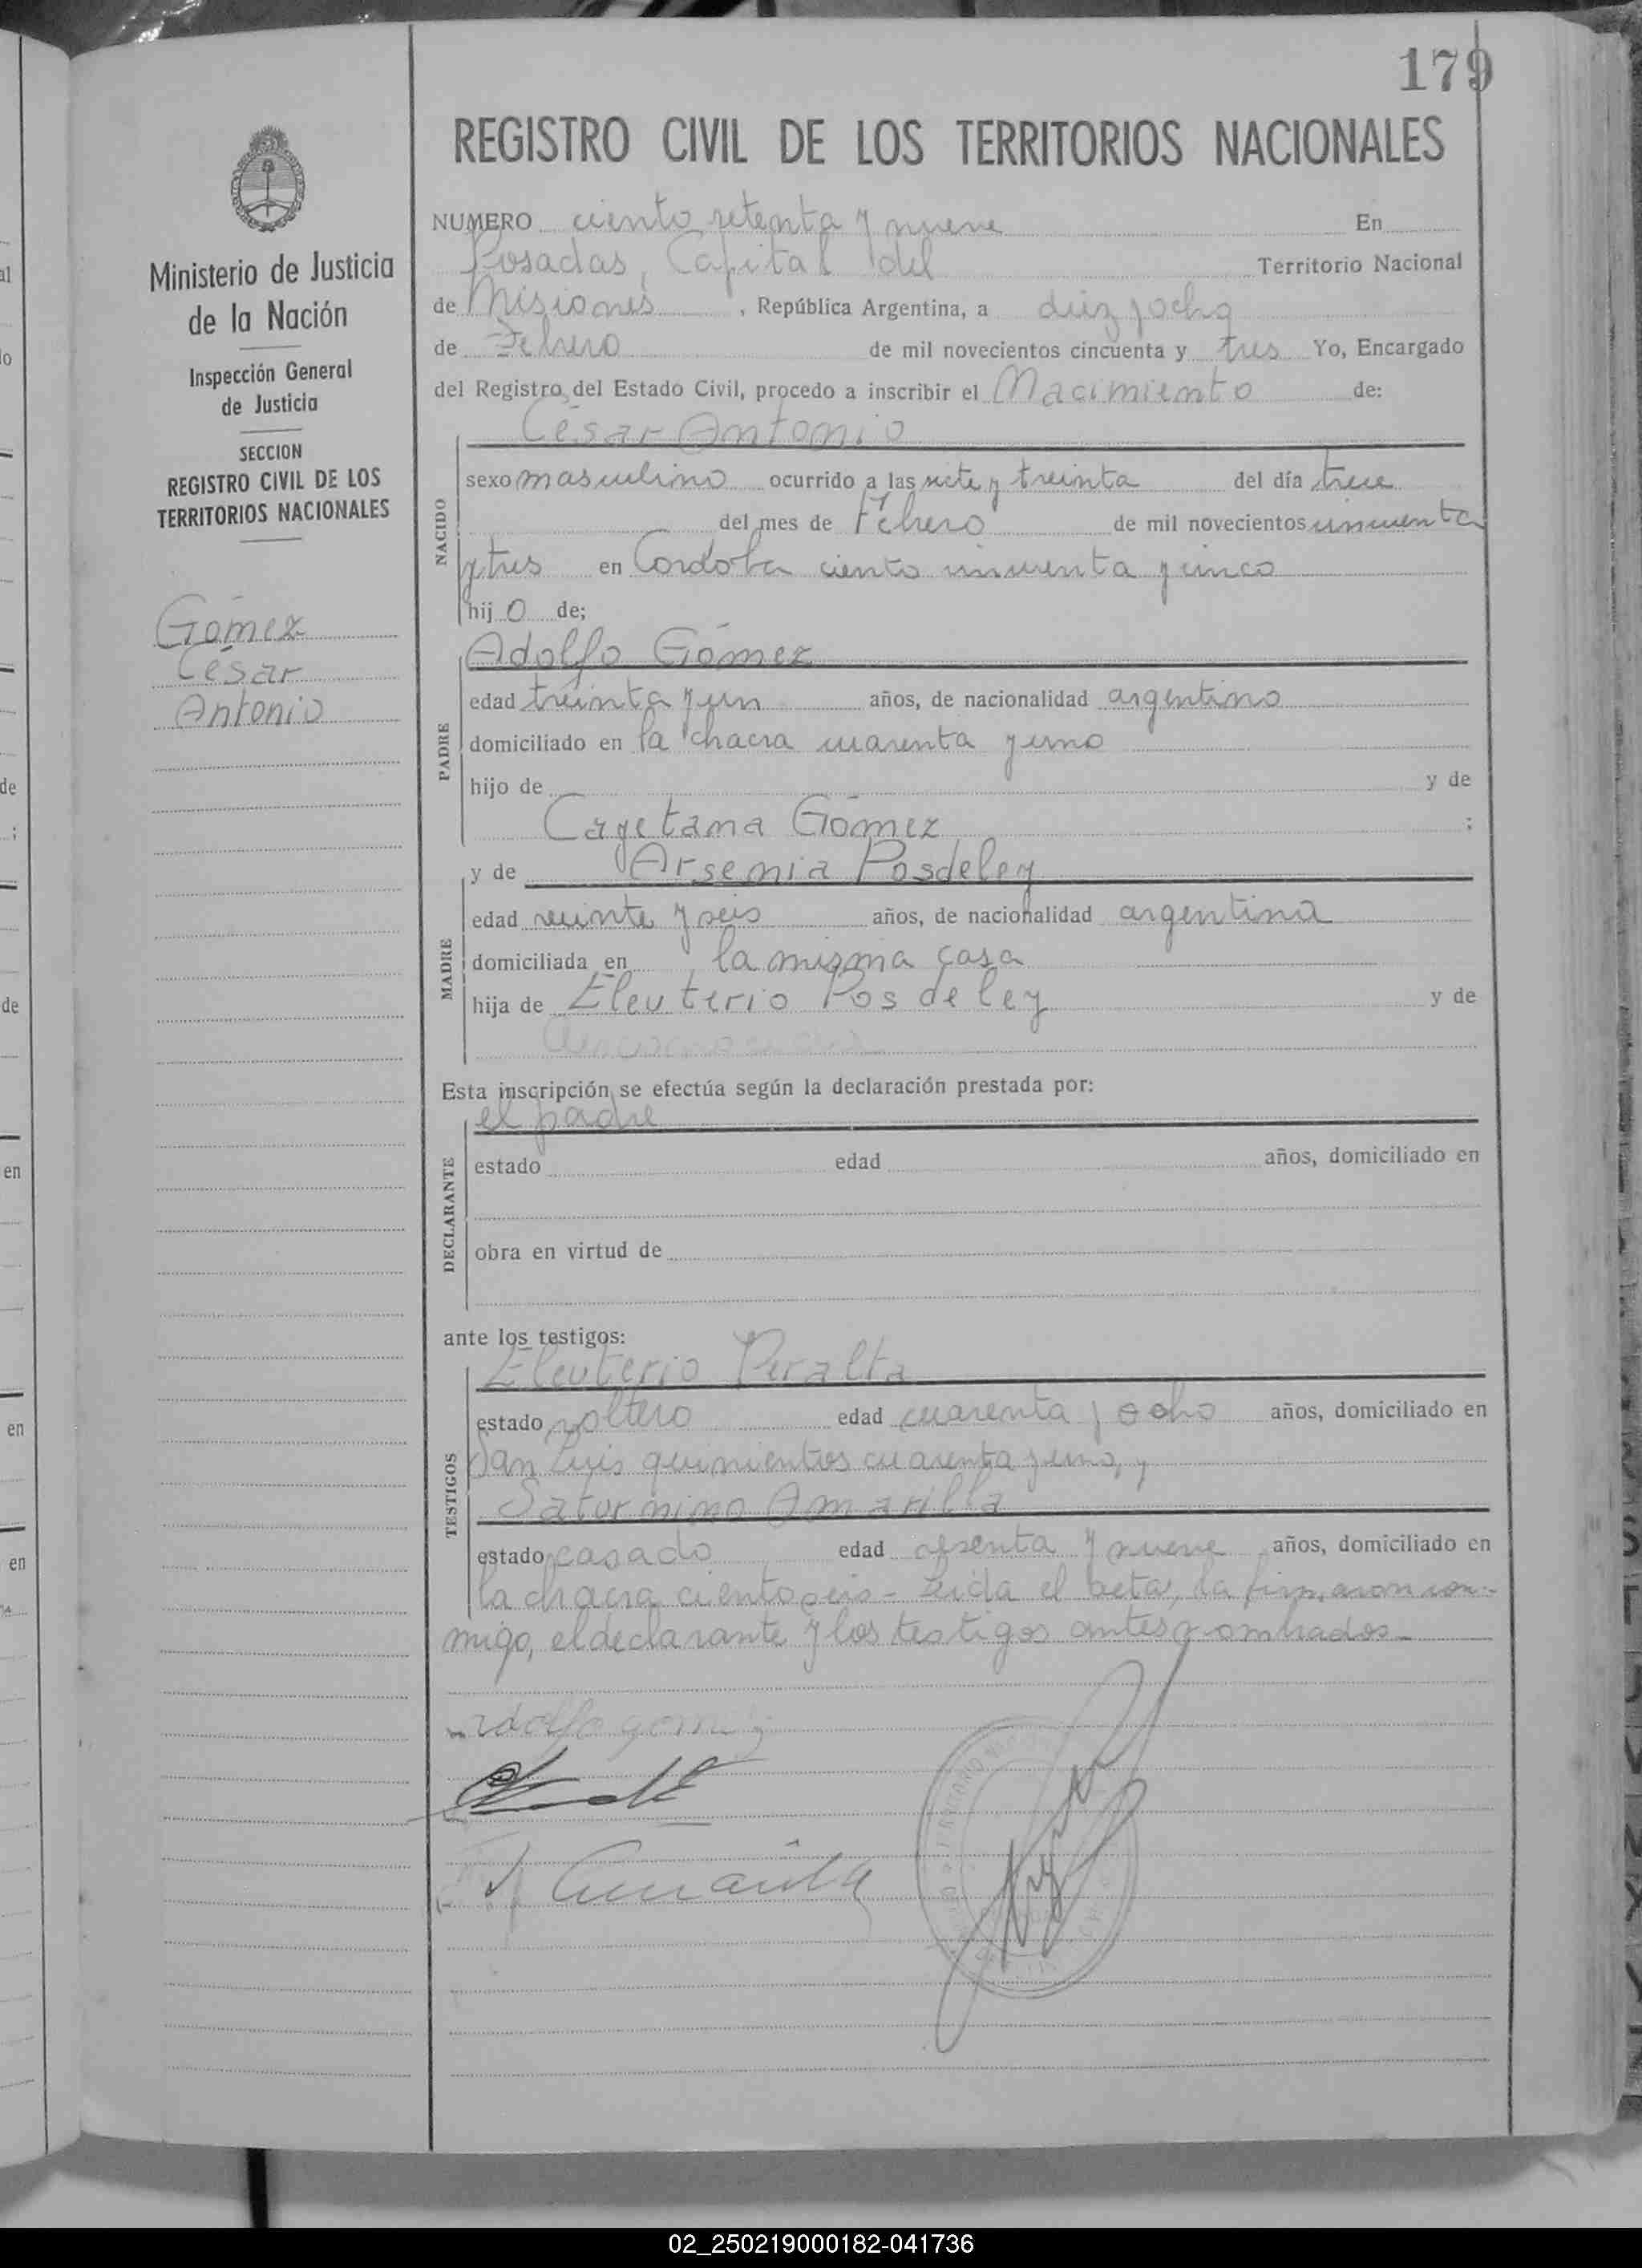 179
REGISTRO CIVIL DE LOS TERRITORIOS NACIONALES
Ministerio de Justicia
de la Nación
Inspección General
de Justicia
SECCION
REGISTRO CIVIL DE LOS
TERRITORIOS NACIONALES
Gómez
César
Antonio
NUMERO ciento setenta y nueve En
Posadas, Capital del Territorio Nacional
de Misiones, República Argentina, a diez y ocho
de Febrero de mil novecientos cincuenta y tres Yo, Encargado
del Registro del Estado Civil, procedo a inscribir el Nacimiento de:
César Antonio
NACIDO
sexo masculino ocurrido a las siete y treinta del día trece
del mes de Febrero de mil novecientos cincuenta
y tres en Cordoba ciento cincuenta y cinco
hijo de;
Adolfo Gómez
PADRE
edad treinta y un años, de nacionalidad argentino
domiciliado en la chacra cuarenta y uno
hijo de y de
Cayetana Gómez ;
y de Arsenia Posdeley
MADRE
edad veinte y seis años, de nacionalidad argentina
domiciliada en la misma casa
hija de Eleuterio Posdeley y de
Esta inscripción se efectúa según la declaración prestada por:
el padre
DECLARANTE
estado edad años, domiciliado en
obra en virtud de
ante los testigos:
Eleuterio Peralta
TESTIGOS
estado soltero edad cuarenta y ocho años, domiciliado en
San Luis quinientos cuarenta y uno, y
Saturnino Amarilla
estado casado edad sesenta y nueve años, domiciliado en
la chacra ciento seis - Leida el acta, la firmaron con-
migo, el declarante y los testigos antes nombrados -
Adolfo gomez
Amarilla
02_250219000182-041736